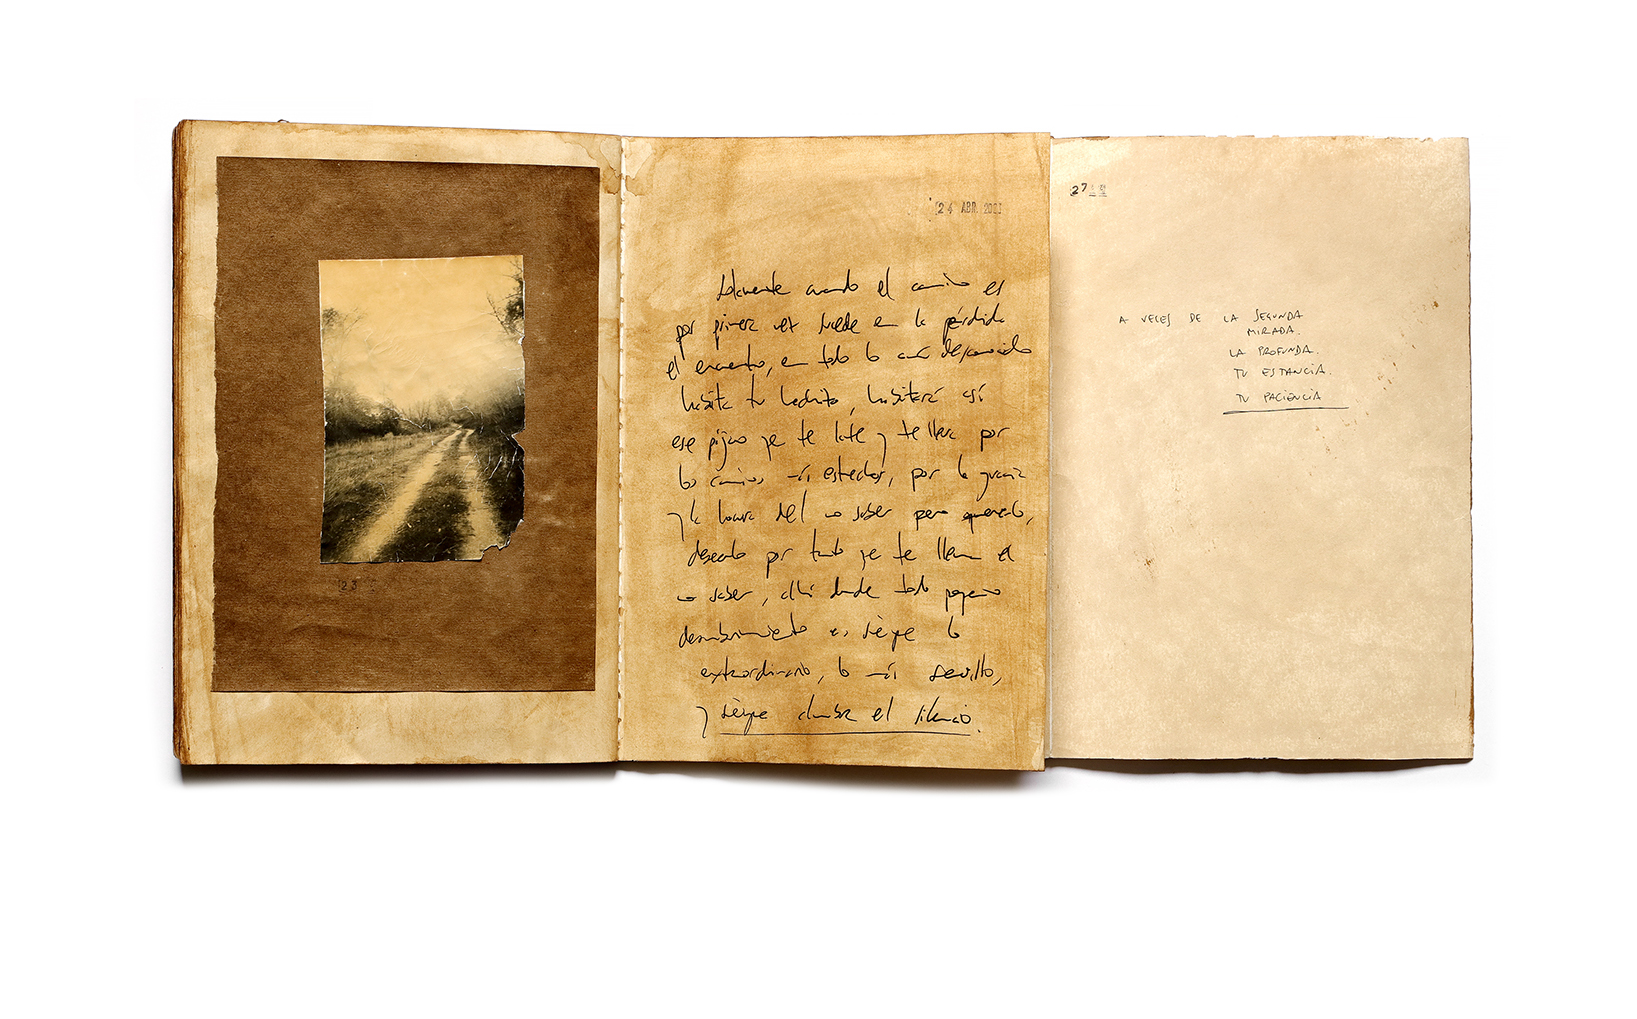 24 ABR. 2003
Solamente cuando el camino es
por primera vez sucede en la pérdida
el encuentro, en todo lo aún desconocido
habita tu , habitará así
ese pájaro que te late y te lleva por
los caminos más estrechos, por la gracia
y la locura del no saber pero quererlo,
desearlo por tanto que te llena el
no saber, allí donde todo pequeño
descubrimiento es siempre lo
extraordinario, lo más sencillo,
y siempre alumbra el silencio.
27
A VECES DE LA SEGUNDA
MIRADA.
LA PROFUNDA.
TU ESTANCIA.
TU PACIENCIA